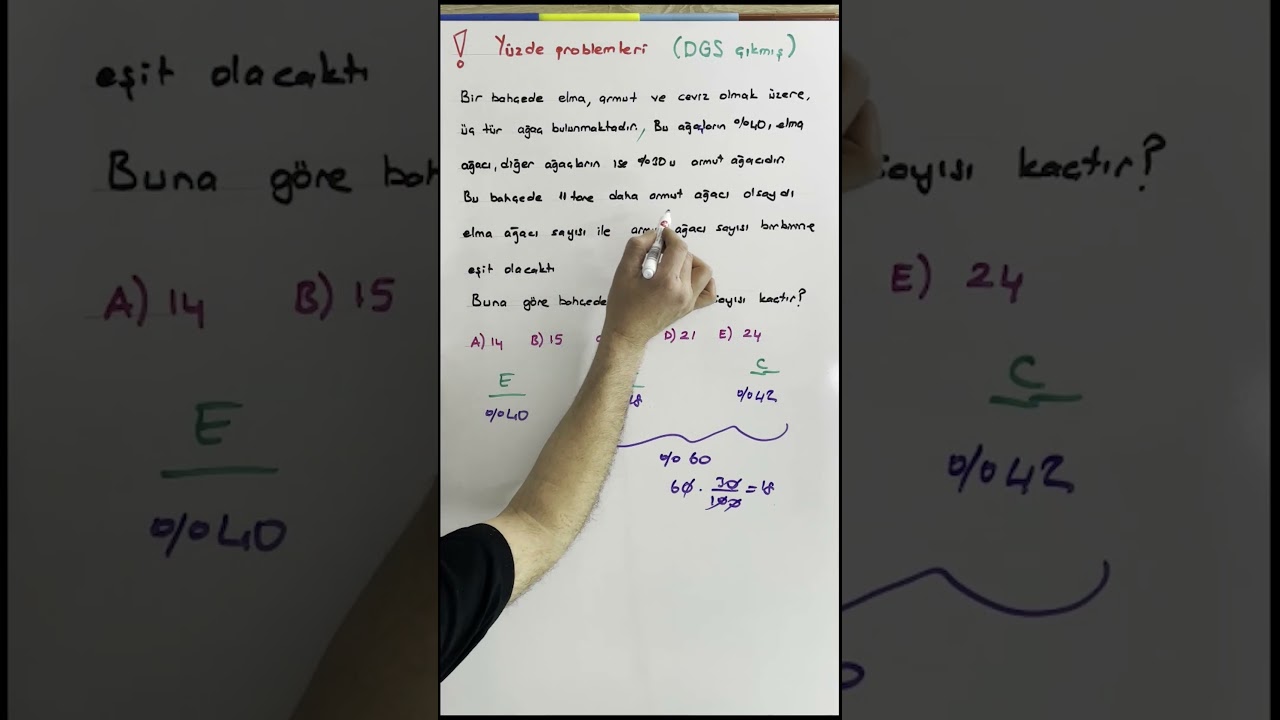 ! Yüzde problemleri (DGS çıkmış)
Bir bahçede elma, armut ve ceviz olmak üzere,
üç tür ağaç bulunmaktadır, Bu ağaçların %40ı elma
ağacı, diğer ağaçların ise %30u armut ağacıdır
Bu bahçede 11 tane daha armut ağacı olsaydı
elma ağacı sayısı ile ağacı sayısı birbirine
eşit olacaktı
Buna göre bahçede sayısı kaçtır?
A) 14 B) 15 D) 21 E) 24
E C
%40 18 %42
% 60
60 · 30/100 = 18
eşit olacaktı
Buna göre bah ayısı kaçtır?
A) 14 B) 15 E) 24
E C
%40 %42